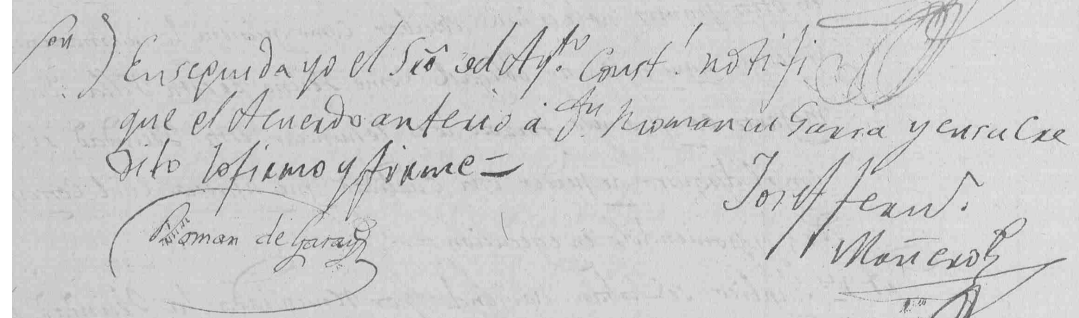 Enseguida yo el Srio del Ayto. Const.l notifi
que el Acuerdo anterio á Dn Roman de Garra y en su Cre
dito lo firmo y firme =
Josef Fern.
Roman de Garay
Moñero